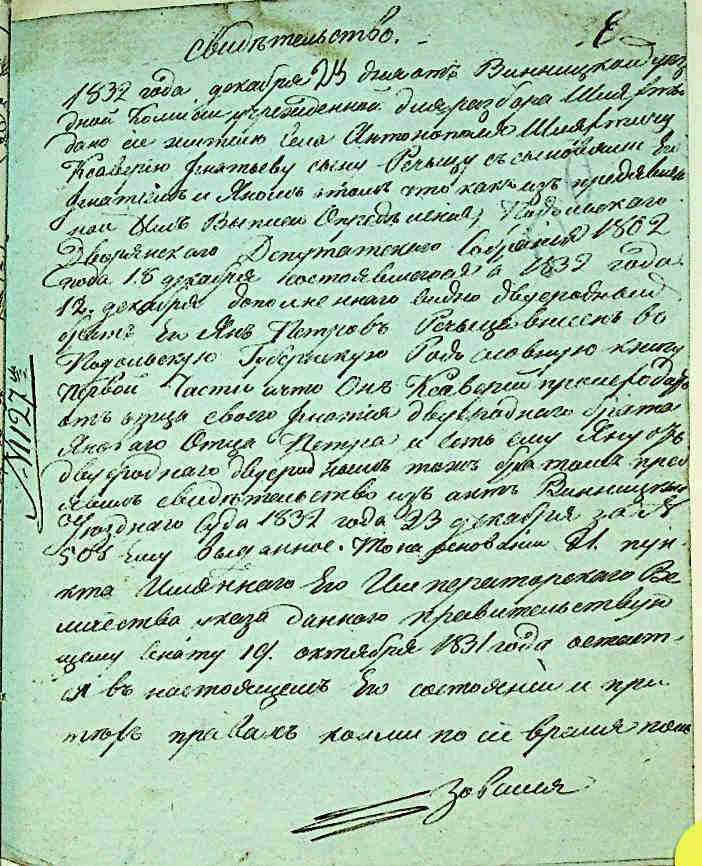 Свидѣтельство.
1832 года декабря 23 дня отъ Винницкой уѣз
дной Комисіи учрежденной для разбора Шляхты
дано сіе жителю села Антонополя Шляхтичу
Ксаверію Игнатьеву сыну Речыцу съ сыновьями Его
Игнатіемъ и Яномъ въ томъ что какъ изъ предъявлен
ной Имъ Выписи Опредѣленія, Подольскаго
Дворянскаго Депутатскаго Собранія 1802
года 18 декабря состоявшагося а 1832 года
12. декабря дополненнаго видно двуеродный
братъ Его Янъ Петровъ Речыца внесенъ во
Подольскую Губернскую Родословную книгу
первой Части и что Онъ Ксаверій происходитъ
отъ отца своего Игнатія двуероднаго брата
Яноваго Отца Петра и есть ему Яну отъ
двуероднаго двуероднымъ тожъ братомъ пред
явилъ свидѣтельство изъ актъ Винницкаго
Уѣзднаго Суда 1832 года 23 декабря за №
505 ему выданное. То на основаніи 21. пун-
кта Имяннаго Его Императорскаго Ве
личества указа даннаго правительствую
щему Сенату 19. октября 1831 года остает-
ся въ настоящемъ Его состояніи и при
тѣхъ правахъ коими по сіе время поль
зовался
№ 1127